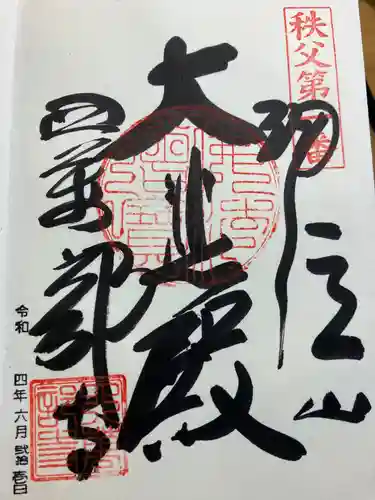 秩父第一番
誦経山
大悲殿
四萬部寺
令和四年六月弐拾壱日